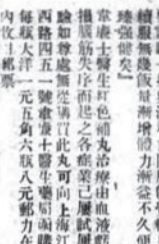 續服無幾飯量漸增體力漸益不久便
臻強健矣』
韋廉士醫生紅色補丸治療由血液虧
損腦筋失序而起之各症業已屢試屢
驗如尊處無從購買此丸可向上海江
西路四五一號韋廉士醫生藥局函購
每瓶大洋一元五角六瓶八元郵力在
內收郵票